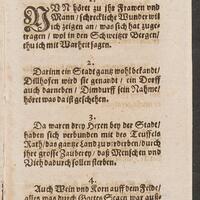 1.
NVN höret zu jhr Frawen vnd
Mann / schreckliche Wunder wil
ich zeigen an / was sich hat zuge
tragen / wol in den Schweitzer Bergen /
thu ich mit Warheit sagen.
2.
Darinn ein Stadt gantz wol bekandt /
Dillhofen wird sie genandt / ein Dorff
auch darneben / Dimdurff sein Nahme /
höret was da ist geschehen.
3.
Da waren drey Hexen bey der Stadt /
haben sich verbunden mit des Teuffels
Rath / das gantze Land zu verderben / durch
jhr grosse Zauberey / daß Menschen vnd
Vieh dadurch sollen sterben.
4.
Auch Wein vnd Korn auff dem Felde /
alles was durch Gottes Segen war auß-